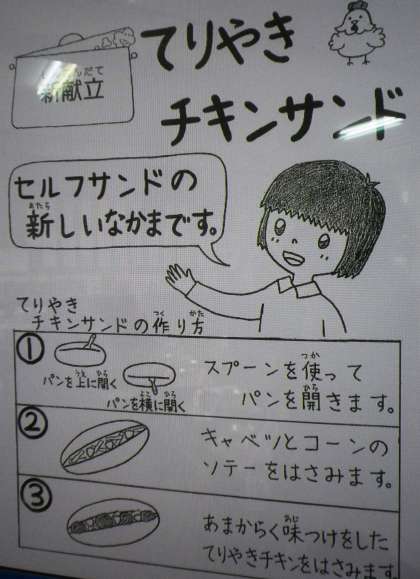 新献立
てりやき
チキンサンド
セルフサンドの
新しいなかまです。
あたら
てりやき
チキンサンドの作り方
つく かた
①
パンを上に開く
うえ ひら
パンを横に開く
よこ ひら
スプーンを使って
つか
パンを開きます。
ひら
②
キャベツとコーンの
ソテーをはさみます。
③
あまからく味つけをした
あじ
てりやきチキンをはさみます